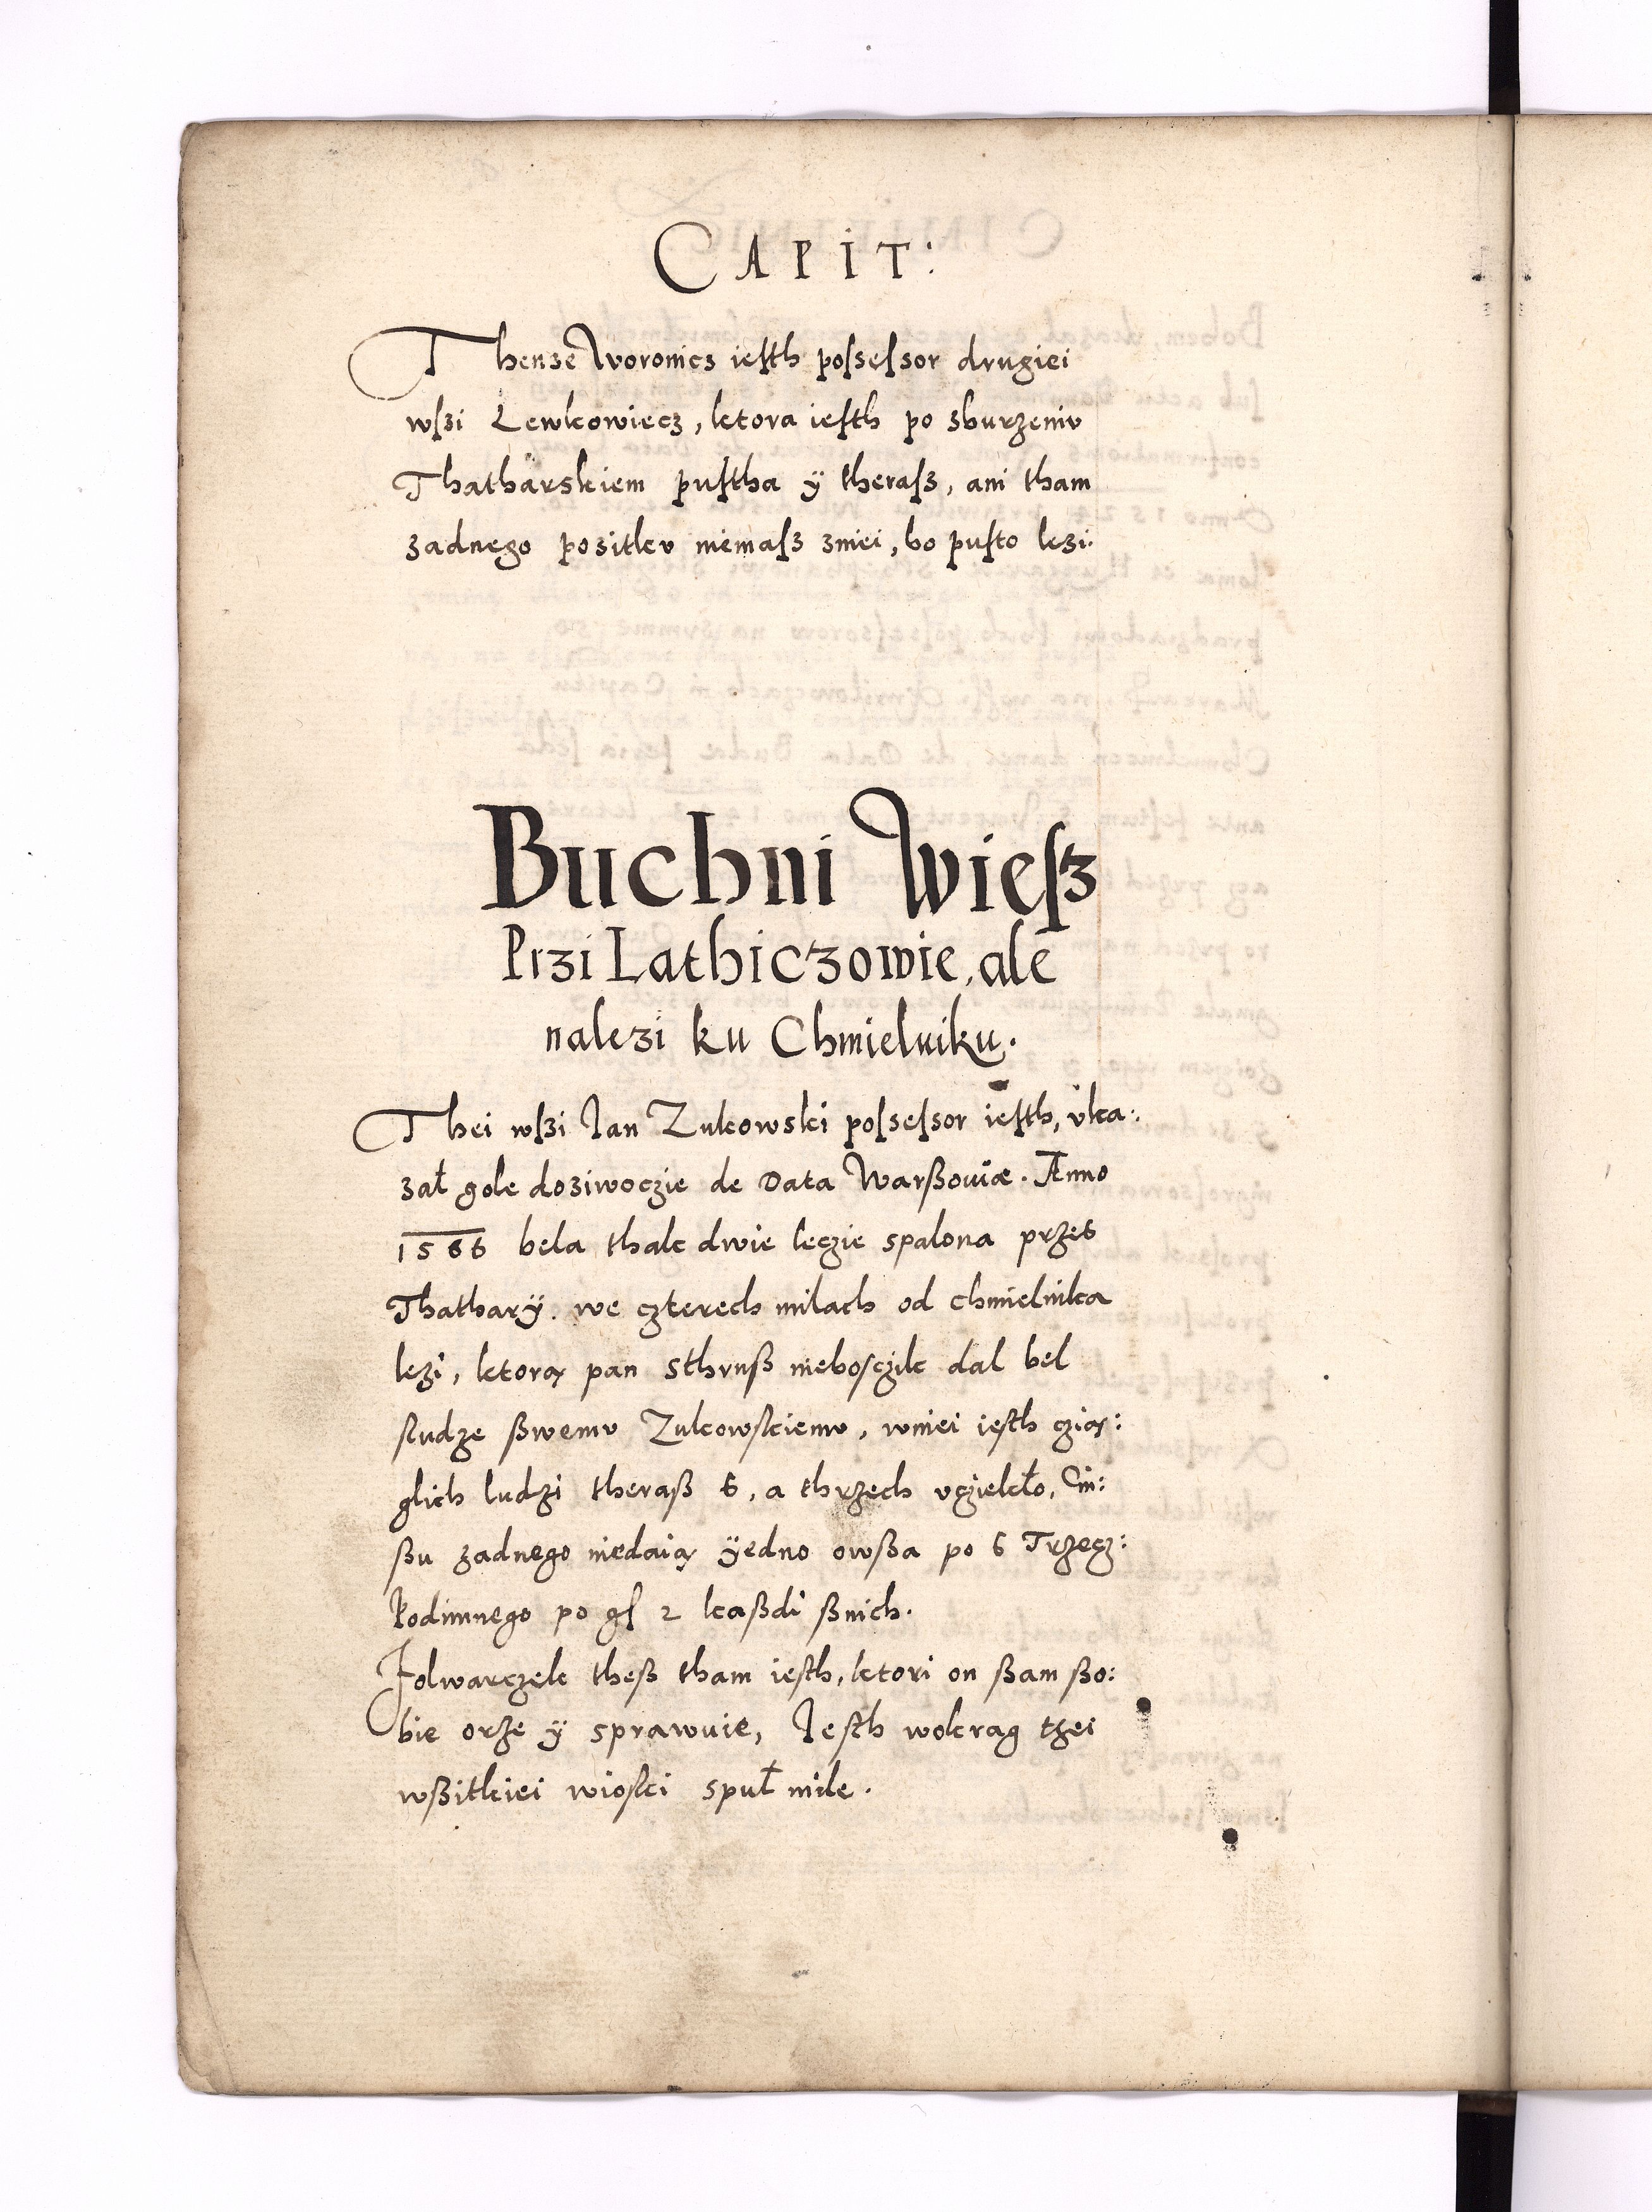 CAPIT:
Thenze Woronicz iesth possessor drugiei
wszi Lewkowiecz, ktora iesth po zburzeniv
Thatharskiem pustha ÿ therasz, ani tham
zadnego pozitkv niemasz zniei, bo pusto lezi.
Buchni Wiesz
Przi Lathiczowie, ale
nalezi ku Chmielniku.
Thei wszi Jan Zulkowski possessor iesth, vka:
zał gole doziwoczie de Data Warßouiæ. Anno
1566 bela thak dwie leczie spalona przes
Thatharÿ. we czterech milach od chmielnika
lezi, ktorą pan Sthruß nieboszczik dal bel
sludze ßwemv Zulkowskiemv, wniei iesth czią:
glich ludzi theraß 6, a thrzech vcziekło, Cin:
ßu zadnego niedaią ÿedno owßa po 6 Trzecz:
kodimnego po gſ 2 kaßdi ßnich.
Folwarczek theß tham iesth, ktori on ßam ßo:
bie orze ÿ sprawuie, Jesth wokrag tzei
wßitkiei wioski spuł mile.